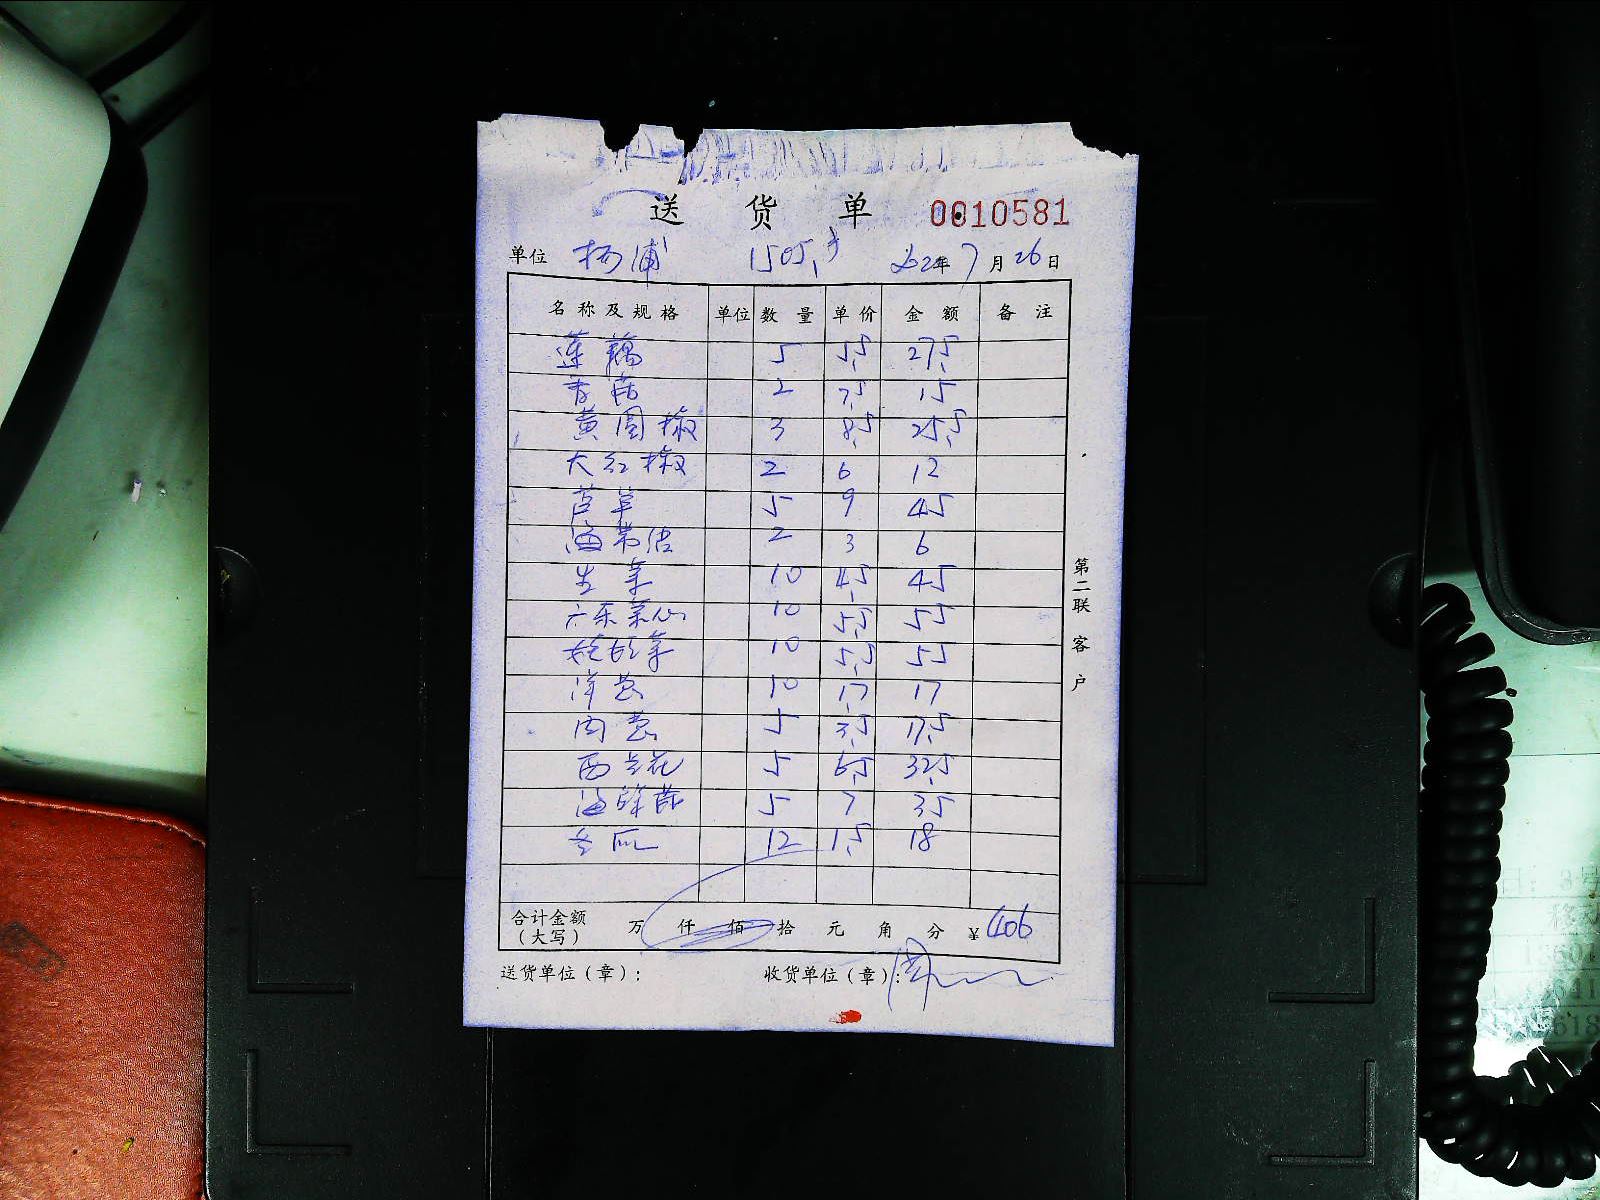 送货单 0010581
单位 杨浦 1505,3 年 7 月 26 日
名称及规格 单位 数量 单价 金额 备注
莲藕 5 5.5 27.5
香菇 2 7.5 15
黄圆椒 3 8.5 25.5
大红椒 2 6 12
芦笋 5 9 45
海带结 2 3 6
生菜 10 4.5 45
广东菜心 10 5.5 55
娃娃菜 10 5.5 55
洋葱 10 1.7 17
肉葱 5 3.5 17.5
西兰花 5 6.5 32.5
海鲜菇 5 7 35
冬瓜 12 1.5 18
合计金额（大写） 万 仟 佰 拾 元 角 分 ¥ 406
送货单位（章）： 收货单位（章）：
第二联 客户